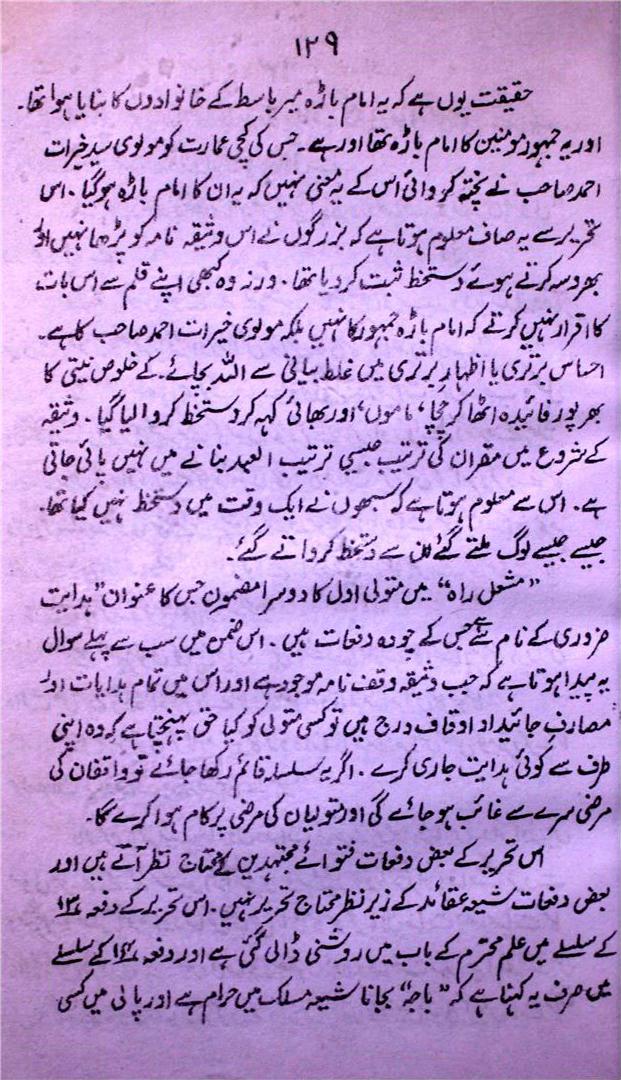 ۱۲۹
حقیقت یوں ہے کہ یہ امام باڑہ میر باسط کے خانوادوں کا بنایا ہوا تھا۔
اور یہ جمہور مومنین کا امام باڑہ تھا اور ہے۔ جس کی کچی عمارت کو مولوی سید خیرات
احمد صاحب نے پختہ کروائی اس کے یہ معنی نہیں کہ یہ ان کا امام باڑہ ہو گیا۔ اس
تحریر سے یہ صاف معلوم ہوتا ہے کہ بزرگوں نے اس وثیقہ نامہ کو پڑھا نہیں اور
بھروسہ کرتے ہوئے دستخط ثبت کر دیا تھا۔ ورنہ وہ کبھی اپنے قلم سے اس بات
کا اقرار نہیں کرتے کہ امام باڑہ جمہور کا نہیں بلکہ مولوی خیرات احمد صاحب کا ہے۔
احساس برتری یا اظہار برتری میں غلط بیانی سے اللہ بچائے۔ کے خلوص نیتی کا
بھرپور فائیدہ اٹھا کر چچا، ماموں، اور بھائی کہہ کر دستخط کروا لیا گیا۔ وثیقہ
کے شروع میں مقران کی ترتیب جیسی ترتیب العبد بنانے میں نہیں پائی جاتی
ہے۔ اس سے معلوم ہوتا ہے کہ سبھوں نے ایک وقت میں دستخط نہیں کیا تھا۔
جیسے جیسے لوگ ملتے گئے ان سے دستخط کرواتے گئے۔
"مشعل راہ" میں متولی اول کا دوسرا مضمون جس کا عنوان "ہدایت
ضروری کے نام سے ہے جس کے چودہ دفعات ہیں۔ اس ضمن میں سب سے پہلے سوال
یہ پیدا ہوتا ہے کہ جب وثیقہ وقف نامہ موجود ہے اور اس میں تمام ہدایات اور
مصارف جائیداد اوقاف درج ہیں تو کسی متولی کو کیا حق پہنچتا ہے کہ وہ اپنی
طرف سے کوئی ہدایت جاری کرے۔ اگر یہ سلسلہ قائم رکھا جائے تو واقفان کی
مرضی سرے سے غائب ہو جائے گی اور متولیان کی مرضی پر کام ہوا کرے گا۔
اس تحریر کے بعض دفعات فتوائے مجتہدین کے محتاج نظر آتے ہیں اور
بعض دفعات شیعہ عقائد کے زیر نظر محتاج تحریر نہیں۔ اس تحریر کے دفعہ
کے سلسلے میں علم محترم کے باب میں روشنی ڈالی گئی ہے اور دفعہ کے سلسلے
میں صرف یہ کہنا ہے کہ "باجہ" بجانا شیعہ مسلک میں حرام ہے اور پانی میں کسی